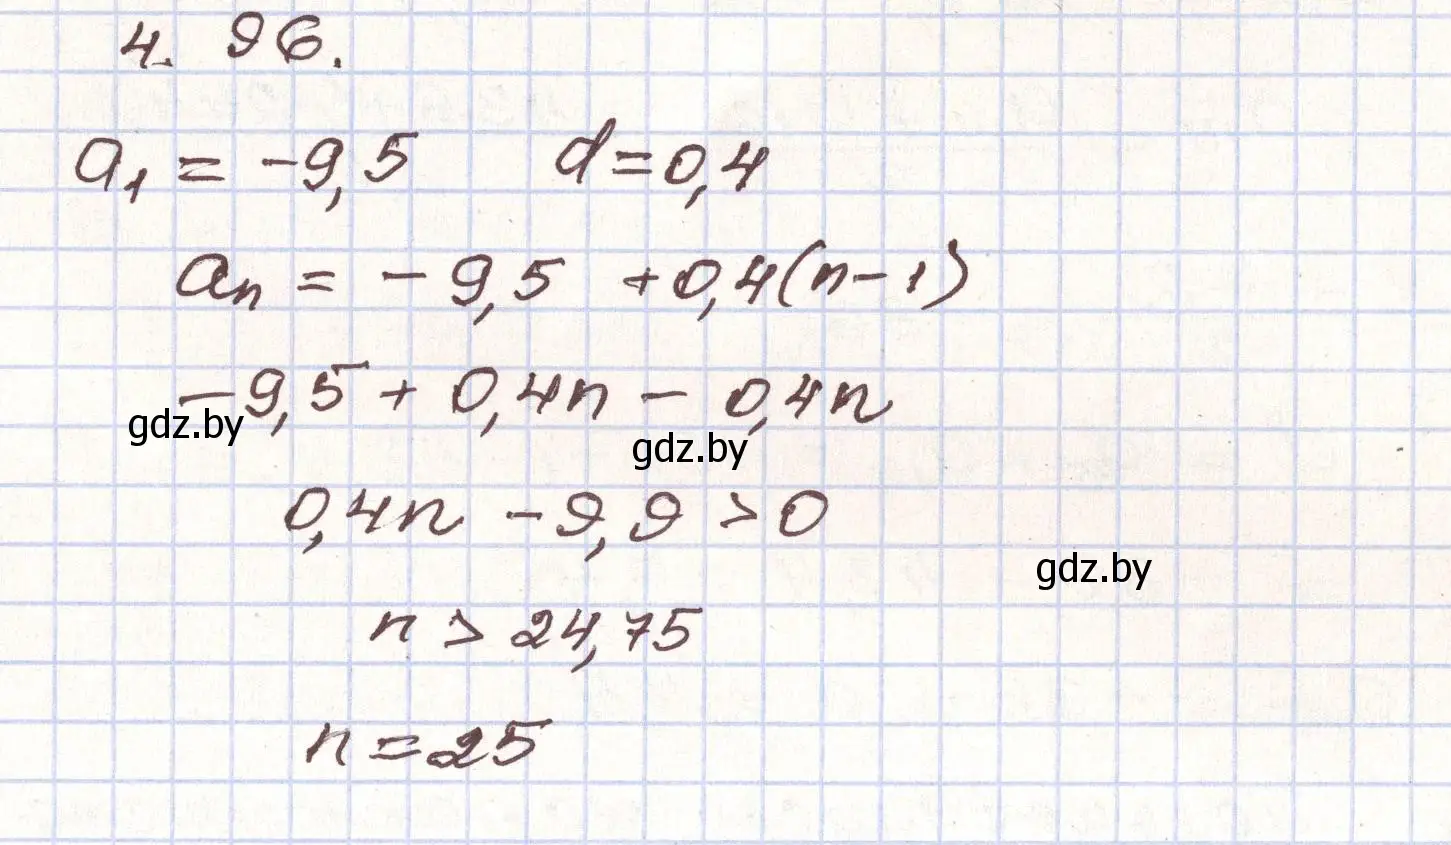 4. 96.
a₁ = -9,5 d = 0,4
aₙ = - 9,5 + 0,4(n - 1)
- 9,5 + 0,4n - 0,4n
gdz.by
gdz.by
0,4n - 9,9 > 0
gdz.by
n > 24,75
n = 25